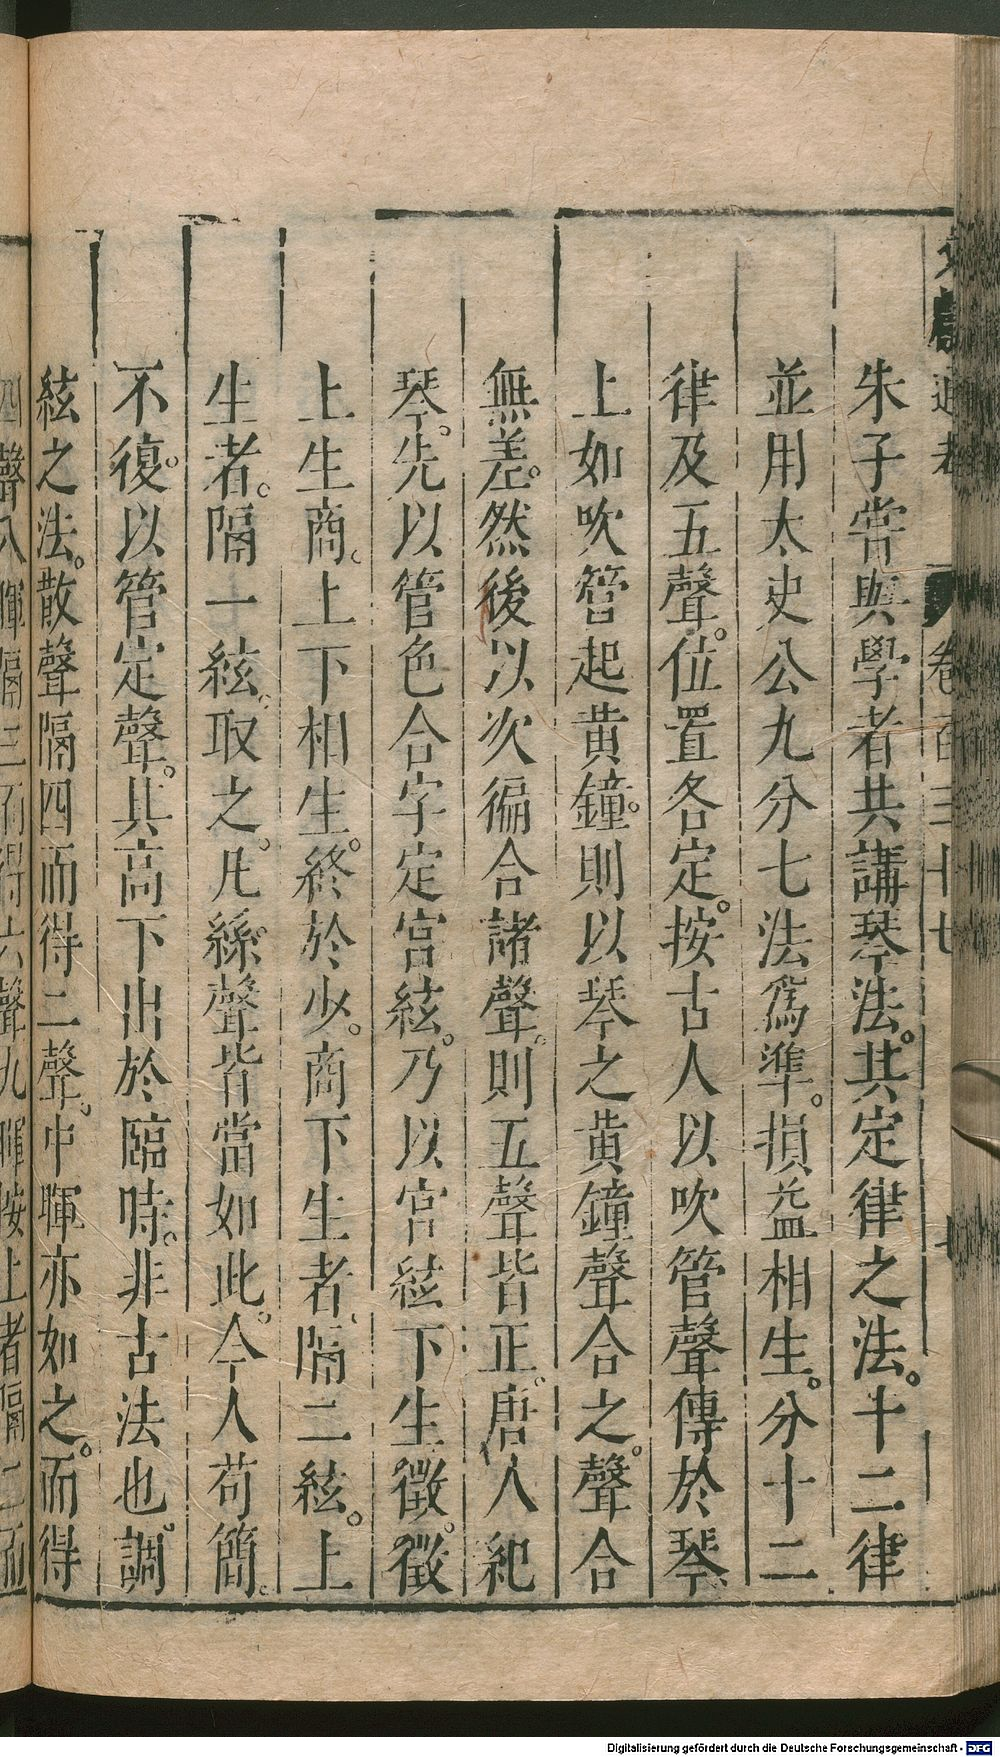 朱子嘗與學者共講琴法。其定律之法。十二律
並用太史公九分七法爲準。損益相生。分十二
律及五聲。位置各定。按古人以吹管聲傳於琴
上如吹管起黃鐘。則以琴之黃鐘聲合之。聲合
無差。然後以次徧合諸聲。則五聲皆正。唐人紀
琴。先以管色合字定宮絃。乃以宮絃下生徵。徵
上生商。上下相生。終於少。商下生者、隔二絃。上
生者。隔一絃、取之。凡絲聲皆當如此。今人苟簡。
不復。以管定聲。其高下出於臨時。非古法也。調
絃之法。散聲隔四而得二聲。中暉亦如之。而得
四聲八暉隔三而得六聲九暉按上者隔二而
卷一百三十七
Digitalisierung gefördert durch die Deutsche Forschungsgemeinschaft - DFG